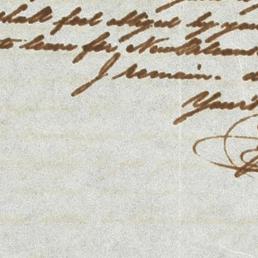 shall feel obliged by you
to leave for New Orleans
I remain.
Your